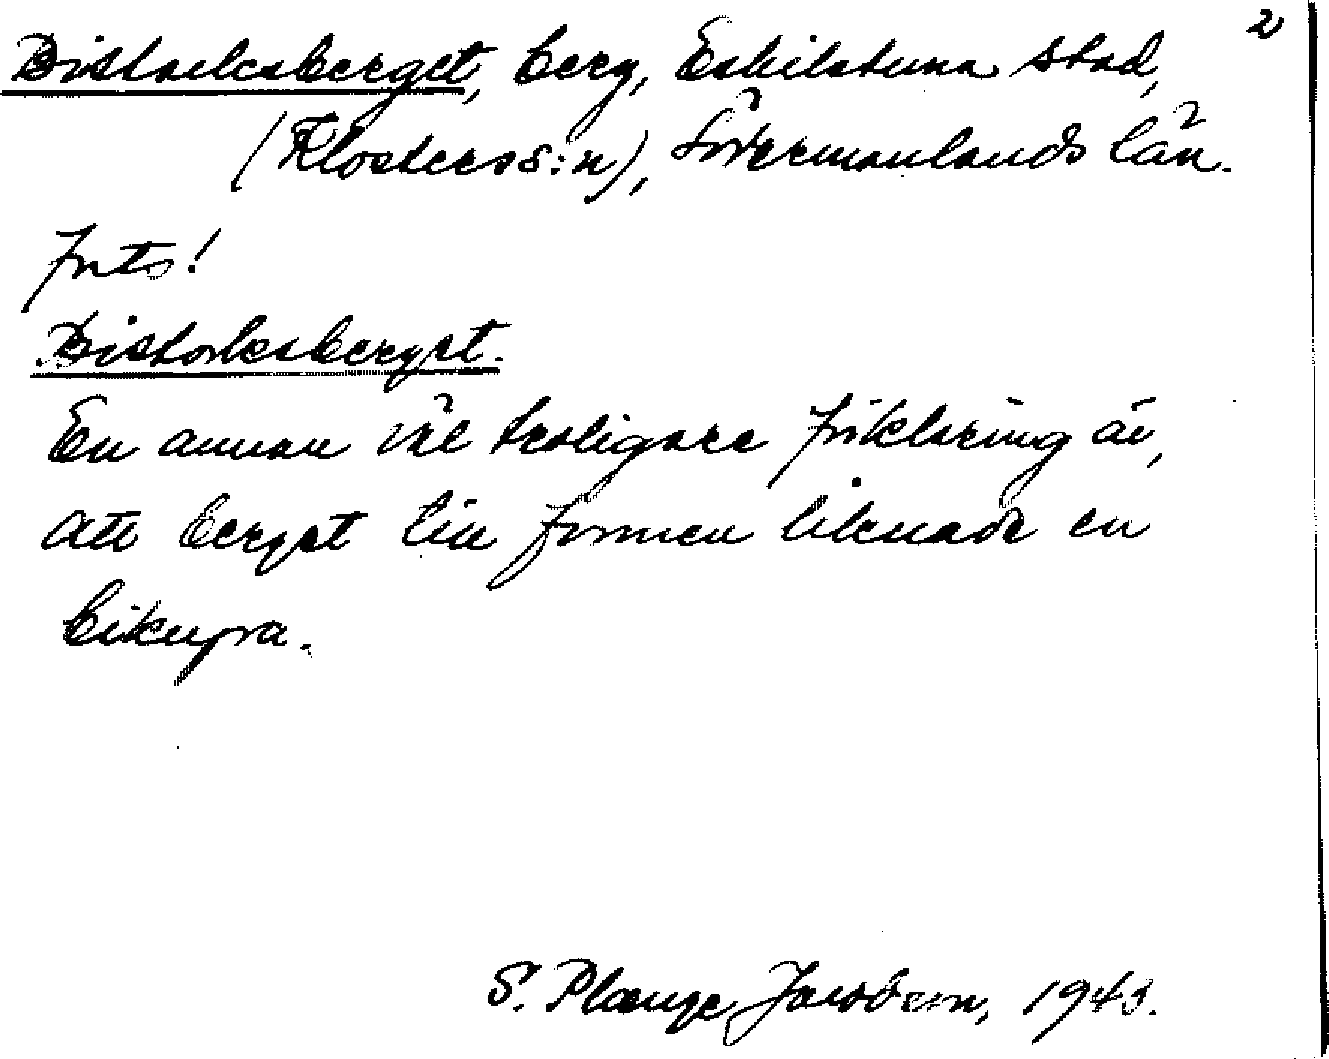 2
Bistocksberget, berg, Eskilstuna stad,
(Klosters s:n), Södermanlands län.
Forts!
Bistocksberget.
En annan väl troligare förklaring är,
att berget till formen liknade en
bikupa.
S. Plænge Jacobson, 1943.